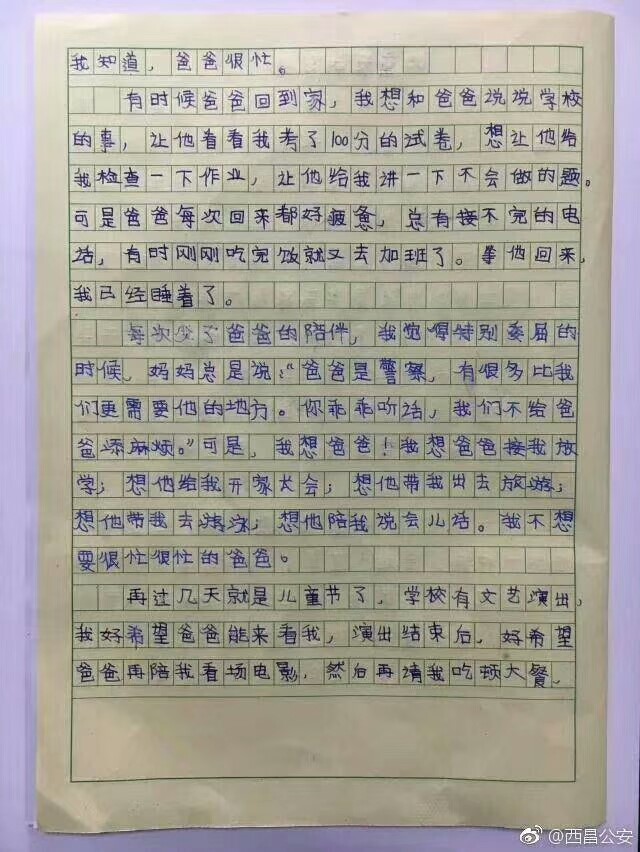 我知道，爸爸很忙。
有时候爸爸回到家，我想和爸爸说说学校
的事，让他看看我考了100分的试卷，想让他给
我检查一下作业，让他给我讲一下不会做的题。
可是爸爸每次回来都好疲惫，总有接不完的电
话，有时刚刚吃完饭就又去加班了。等他回来，
我已经睡着了。
每次少了爸爸的陪伴，我觉得特别委屈的
时候，妈妈总是说：“爸爸是警察，有很多比我
们更需要他的地方。你乖乖听话，我们不给爸
爸添麻烦。”可是，我想爸爸！我想爸爸接我放
学；想他给我开家长会；想他带我出去放游；
想他带我去游泳；想他陪我说会儿话。我不想
要很忙很忙的爸爸。
再过几天就是儿童节了，学校有文艺演出，
我好希望爸爸能来看我，演出结束后，好希望
爸爸再陪我看场电影，然后再请我吃顿大餐，
@西昌公安